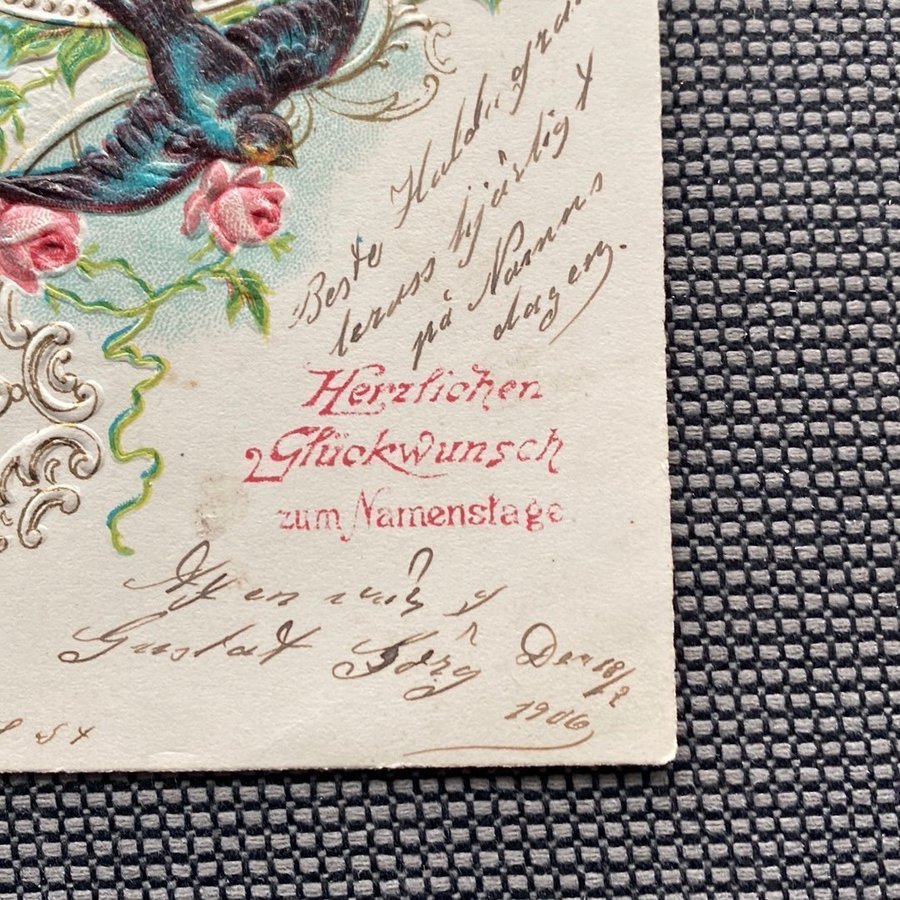 Beste Huldi grat
leras hjärtligt
på Namns
dagen.
Herzlichen
Glückwunsch
zum Namenstage
Af en
Gustaf Den 18/2
1906